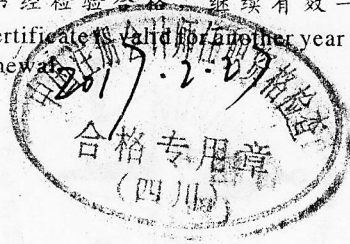 经检验合格 继续有效一
ertificate is valid for another year
newal
2017.2.27
中国注册会计师任职资格检查
合格专用章
(四川)